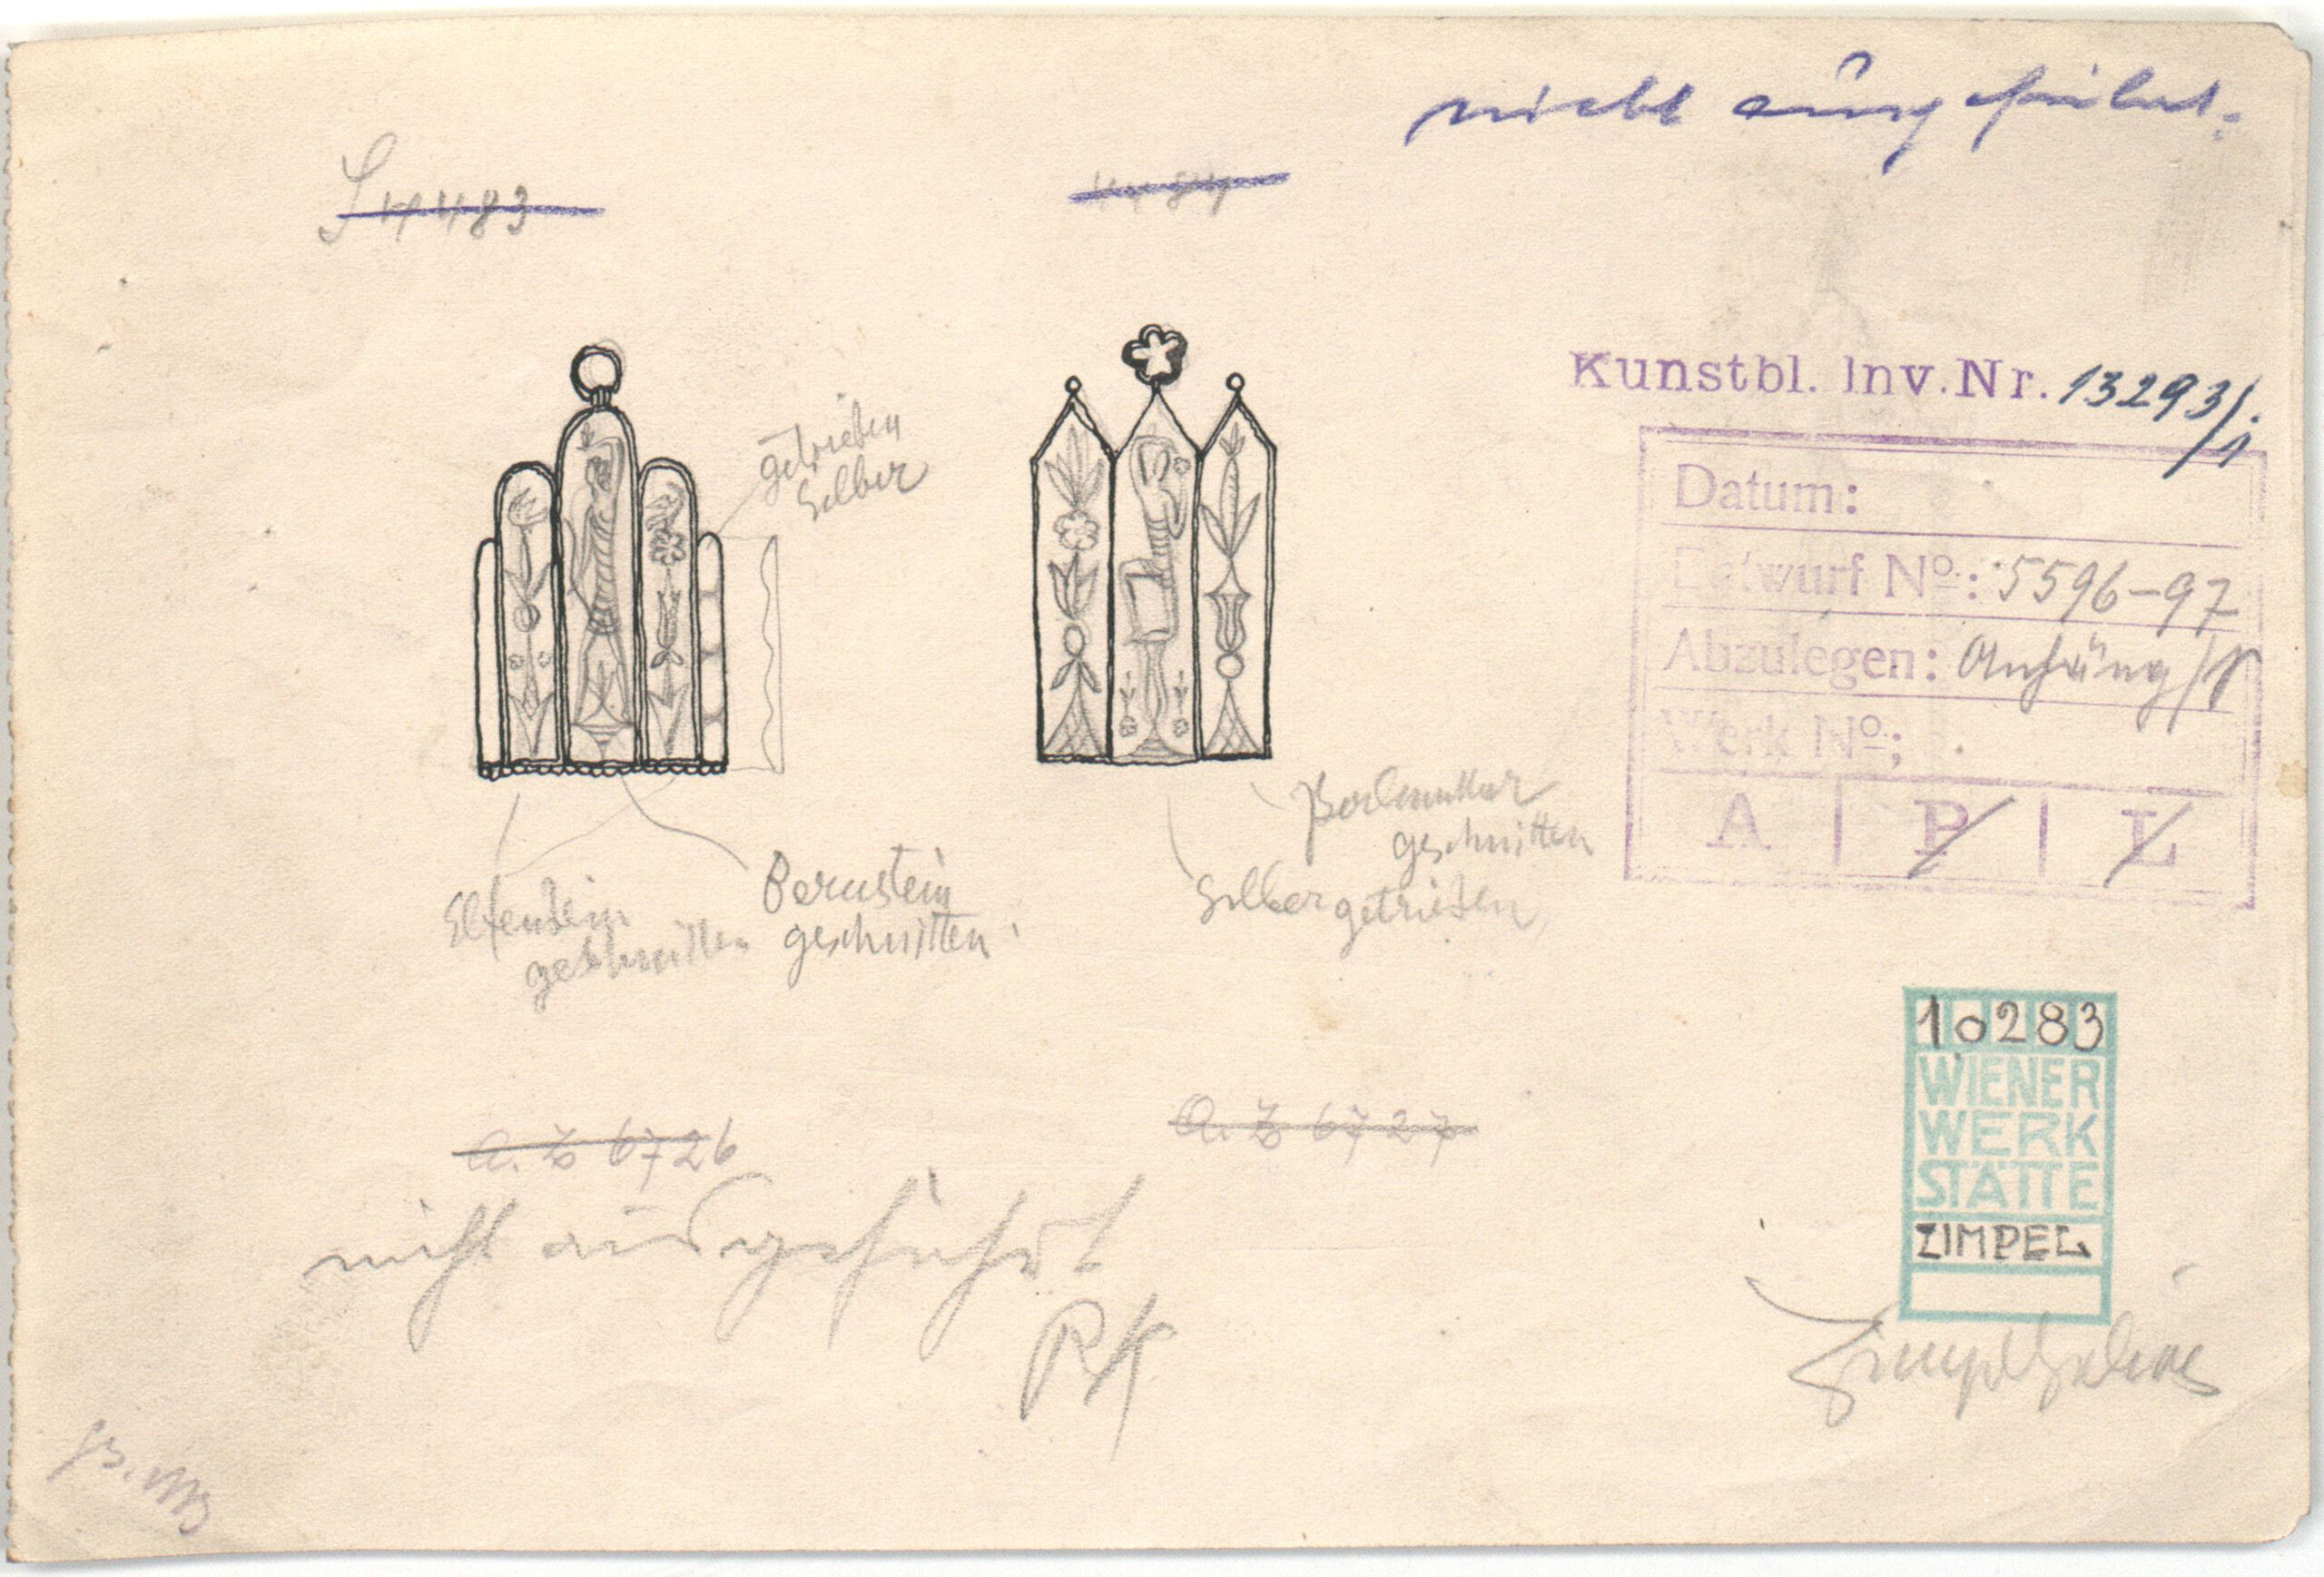 nicht ausgeführt.
S 4483
4484
Kunstbl. Inv. Nr. 13293/1
getrieben
Silber
Datum:
Entwurf No: 5596-97
Abzulegen: Anhäng/
Werk No:
A P L
Perlmutter
geschnitten
Silber getrieben
Elfenbein
geschnitten
Bernstein
geschnitten
10283
WIENER
WERK
STÄTTE
ZIMPEL
A. Z 6726
A. Z 6727
nicht ausgeführt
RK
Zimpel Julius